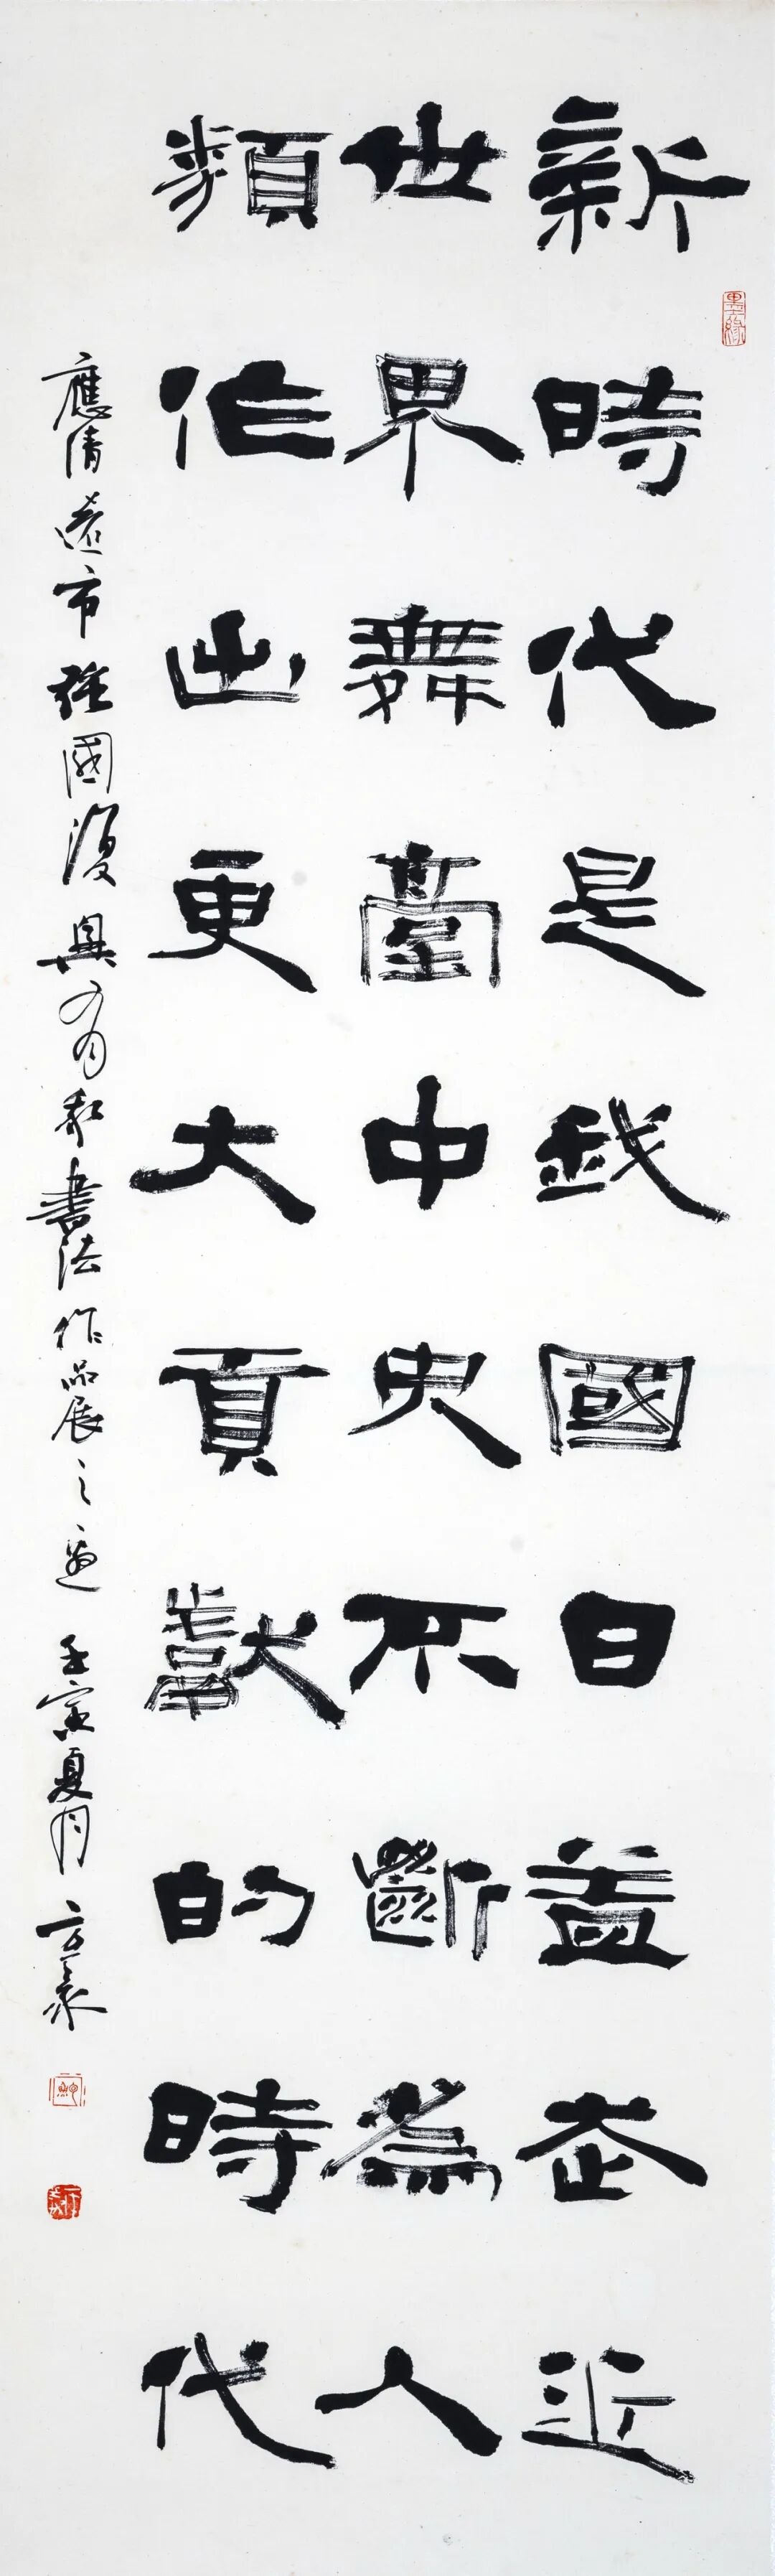 新時代是我國日益走近
世界舞臺中央不斷為人
類作出更大貢獻的時代
應清遠市強國復興有我書法作品展之邀 壬寅夏月
墨緣